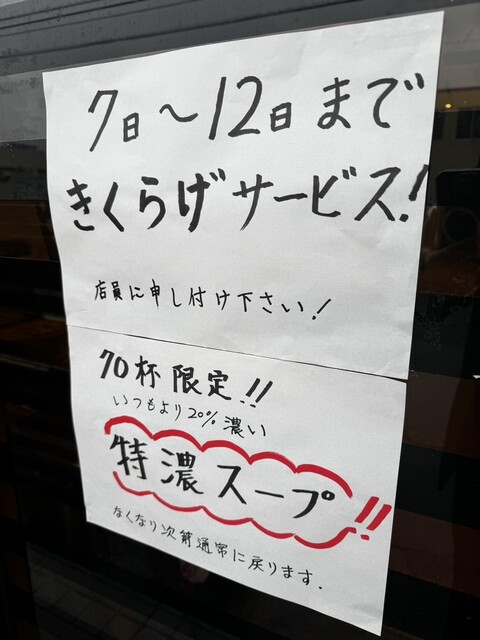 7日〜12日まで
きくらげサービス!
店員に申し付け下さい!
70杯限定!!
いつもより20%濃い
特濃スープ!!
なくなり次第通常に戻ります.